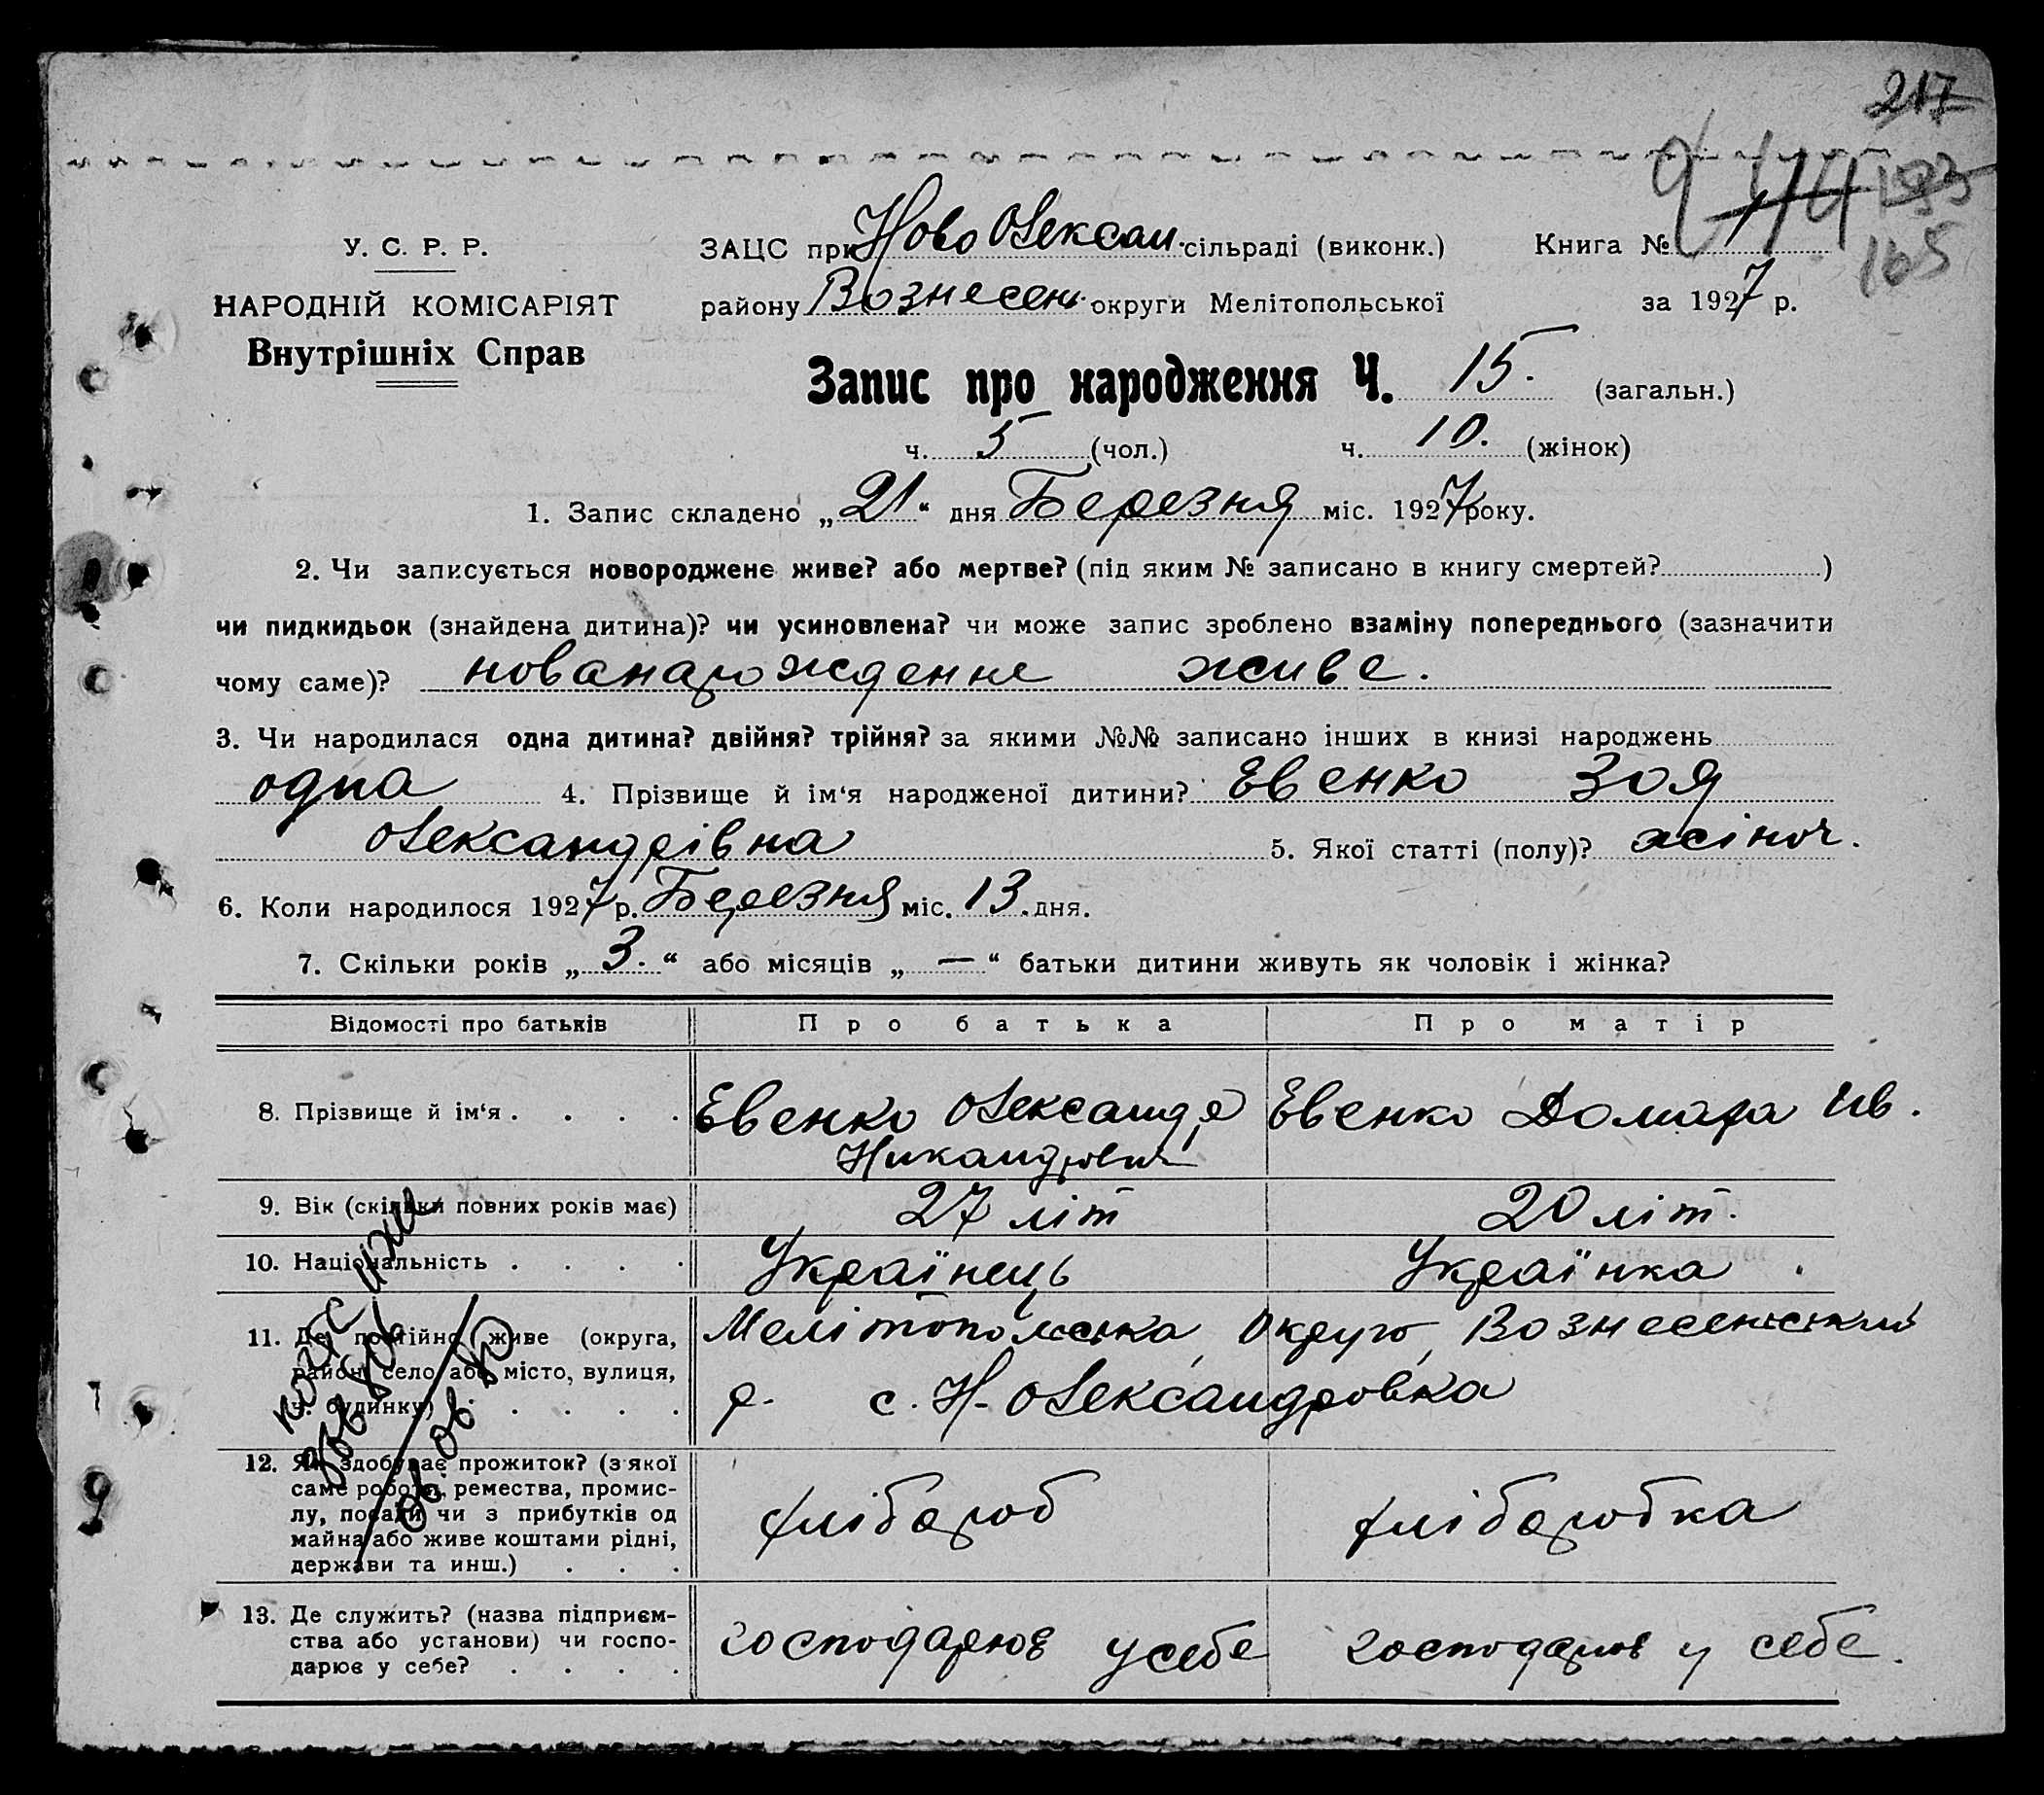 217
9 174 193
165
У. С. Р. Р.
НАРОДНІЙ КОМІСАРІЯТ
Внутрішніх Справ
ЗАЦС при Ново Олексан. сільраді (виконк.) Книга №
району Вознесен. округи Мелітопольської за 1927 р.
Запис про народження Ч. 15. (загальн.)
ч. 5 (чол.) ч. 10. (жінок)
1. Запис складено „21“ дня Березня міс. 1927 року.
2. Чи записується новороджене живе? або мертве? (під яким № записано в книгу смертей? )
чи пидкидьок (знайдена дитина)? чи усиновлена? чи може запис зроблено взаміну попереднього (зазначити
чому саме)? нованарожденне живе.
3. Чи народилася одна дитина? двійня? трійня? за якими №№ записано інших в книзі народжень
одна 4. Прізвище й ім‘я народженої дитини? Евенко Зоя
Олександрівна 5. Якої статті (полу)? жіноч.
6. Коли народилося 1927 р. Березня міс. 13. дня.
7. Скільки років „3.“ або місяців „—“ батьки дитини живуть як чоловік і жінка?
Відомості про батьків Про батька Про матір
8. Прізвище й ім‘я . . . . Евенко Олександр Евенко Домаха Ив.
Никандрович
9. Вік (скільки повних років має) 27 літ 20 літ.
10. Національність . . . . Українець Українка .
11. Де постійно живе (округа, Мелітопольська, Округо, Вознесенський
район, село або місто, вулиця,
ч. будинку) . . . . . р. с. Н-Олександровка
12. Як здобуває прожиток? (з якої
саме роботи, ремества, промис-
лу, посади чи з прибутків од хлібароб хлібаробка
майна або живе коштами рідні,
держави та инш.) . . .
13. Де служить? (назва підприєм-
ства або установи) чи госпо- господарюв у себе господарюв у себе.
дарює у себе? . . . .